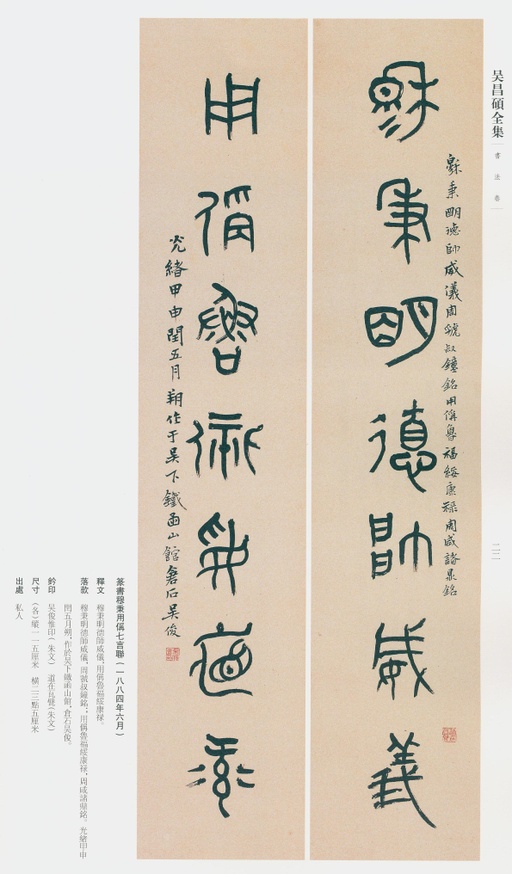 吴昌碩全集
書法卷
二三
穌秉明德帥威義
穌秉明德帥威儀周虢叔鐘銘用偁魯福綏康祿周威諸鼎銘
用偁魯福綏康祿
光緒甲申閏五月朔作于吳下鐵函山館倉石吳俊
篆書穆秉用偁七言聯(一八八四年六月)
釋文 穆秉明德師威儀,用偁魯福綏康禄。
落款 穆秉明德師威儀,周虢叔鐘銘;用偁魯福綏康禄,周威諸鼎銘。光緒甲申
閏五月朔,作於吴下鐵函山館,倉石吴俊。
鈐印 吴俊唯印(朱文) 道在瓦甓(朱文)
尺寸 (各)縱一一五厘米 橫二三點五厘米
出處 私人